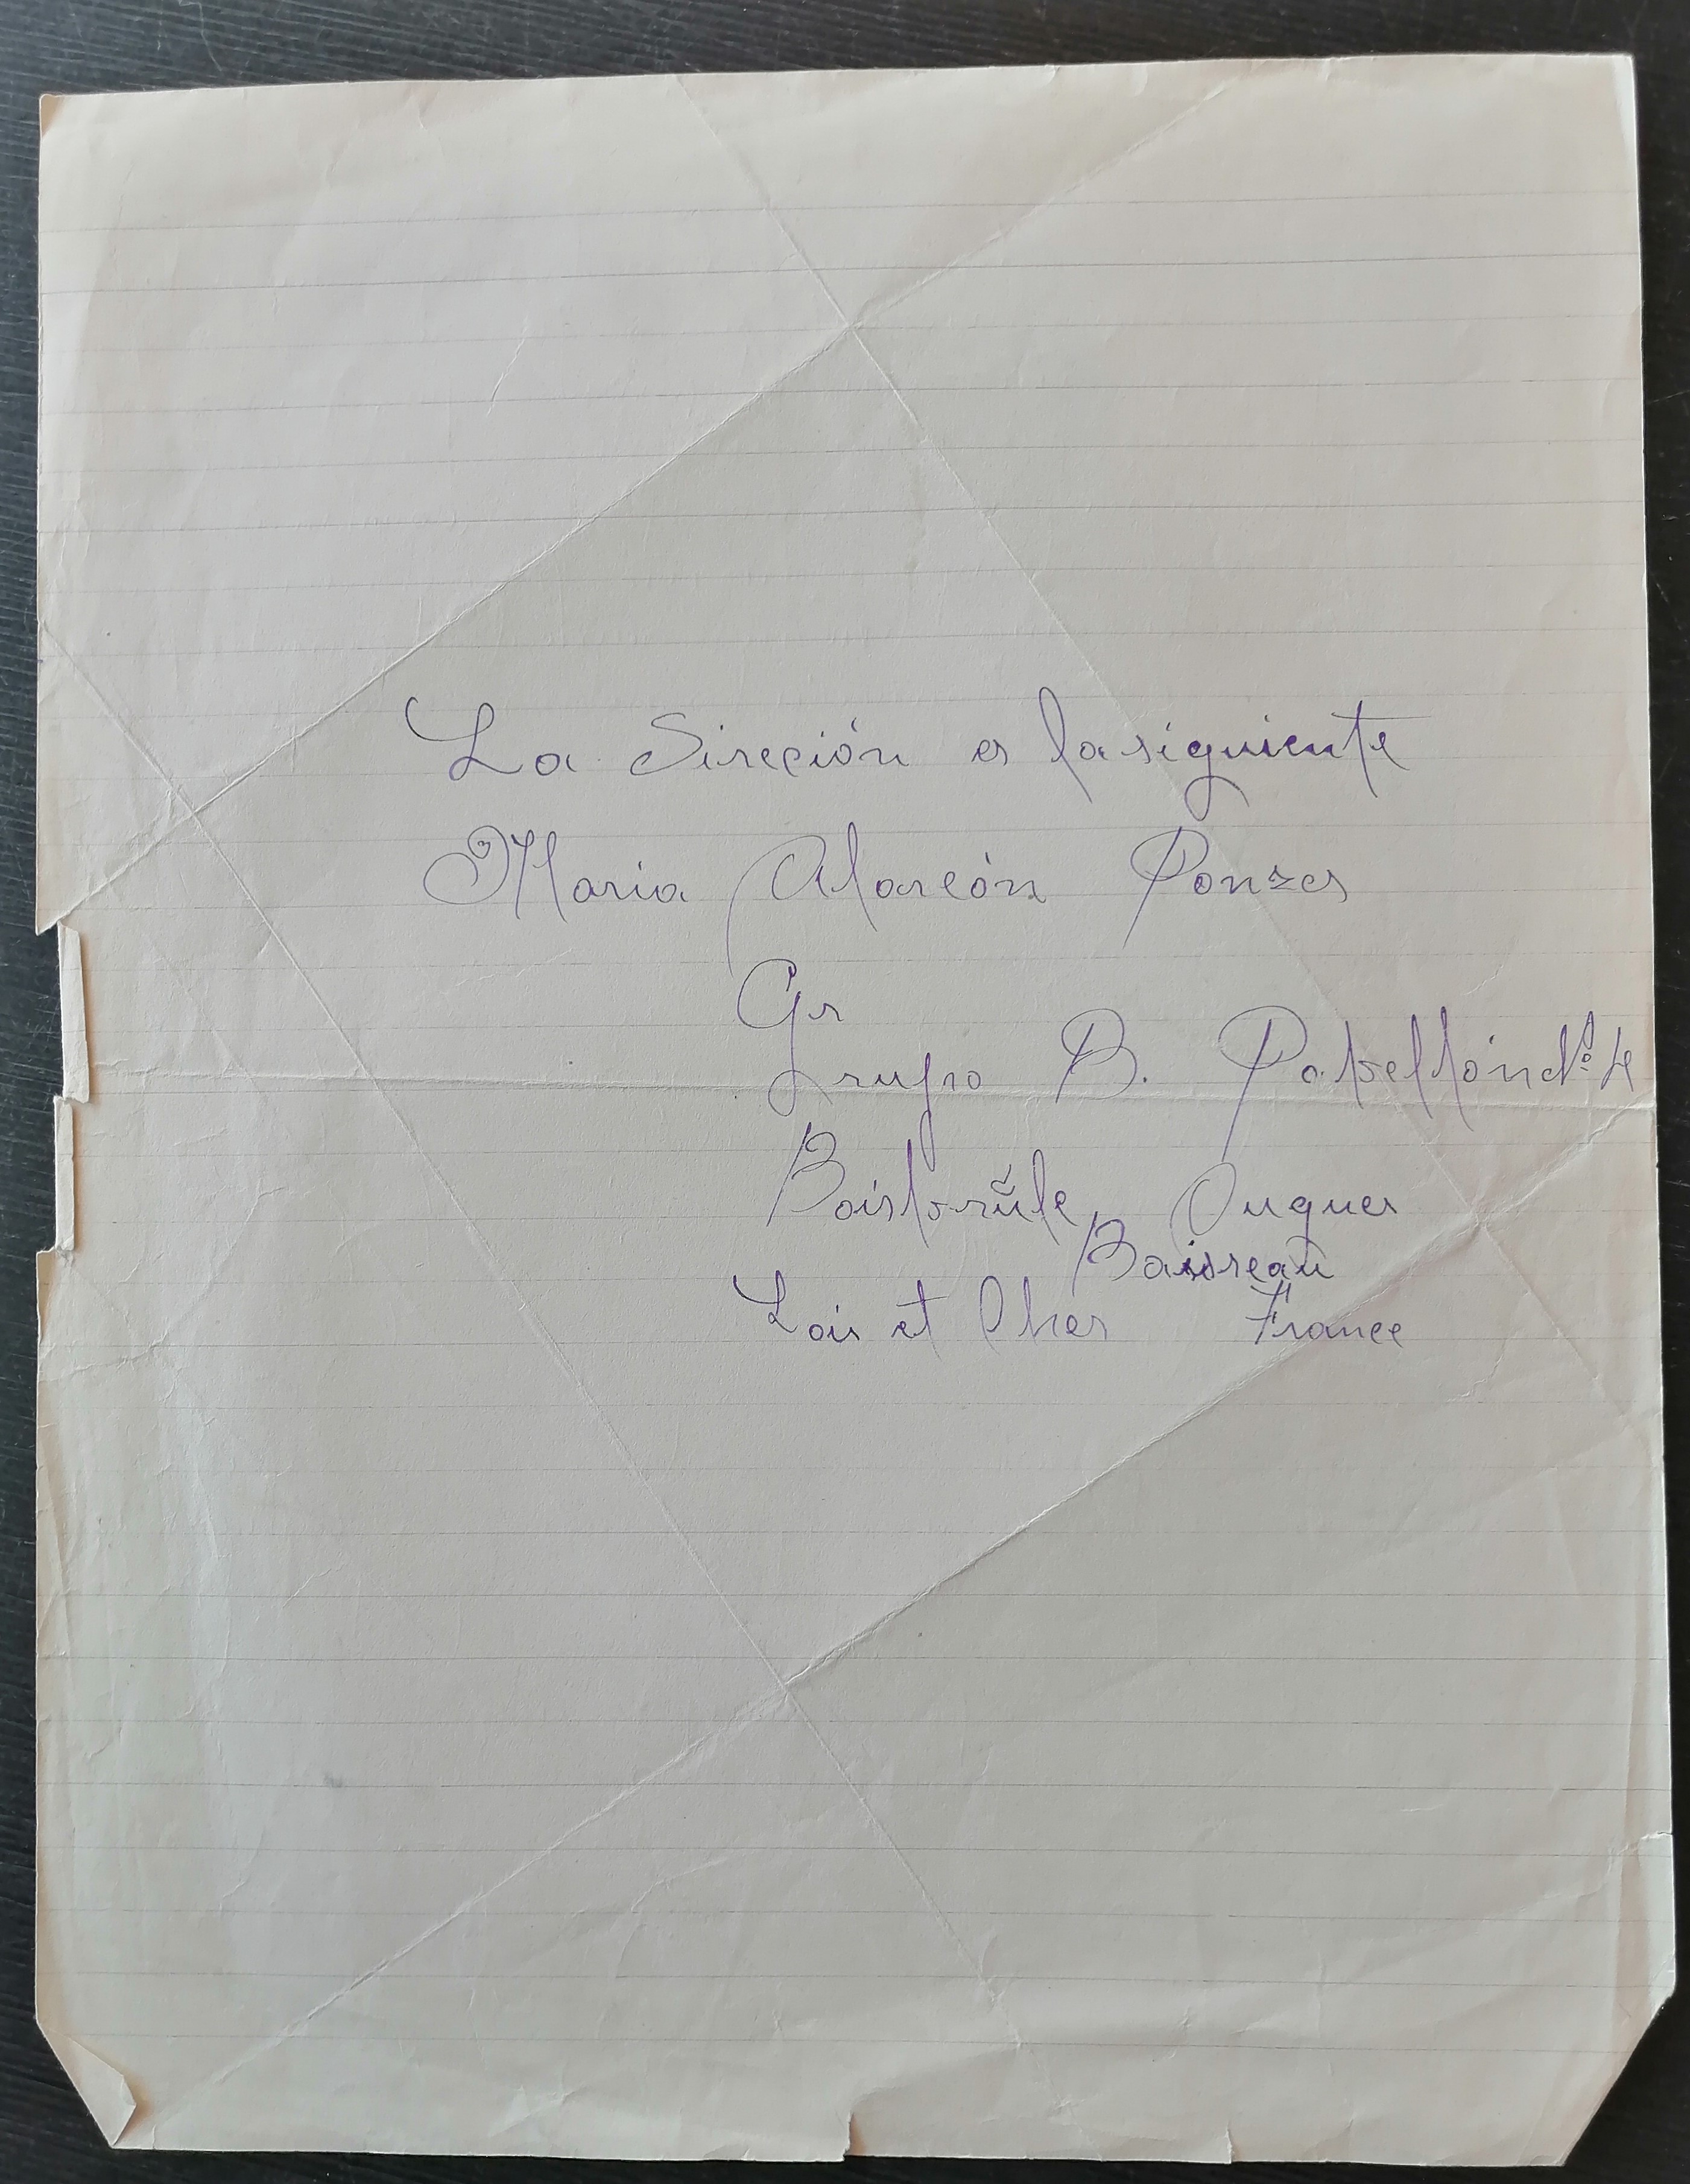 La Sireción es la siguiente
Maria Alarcón Ponzes
Gr
Grupo B. Pabellón nº 4
Boisbrûle Ougues
Baisseau
Lois et Cher France